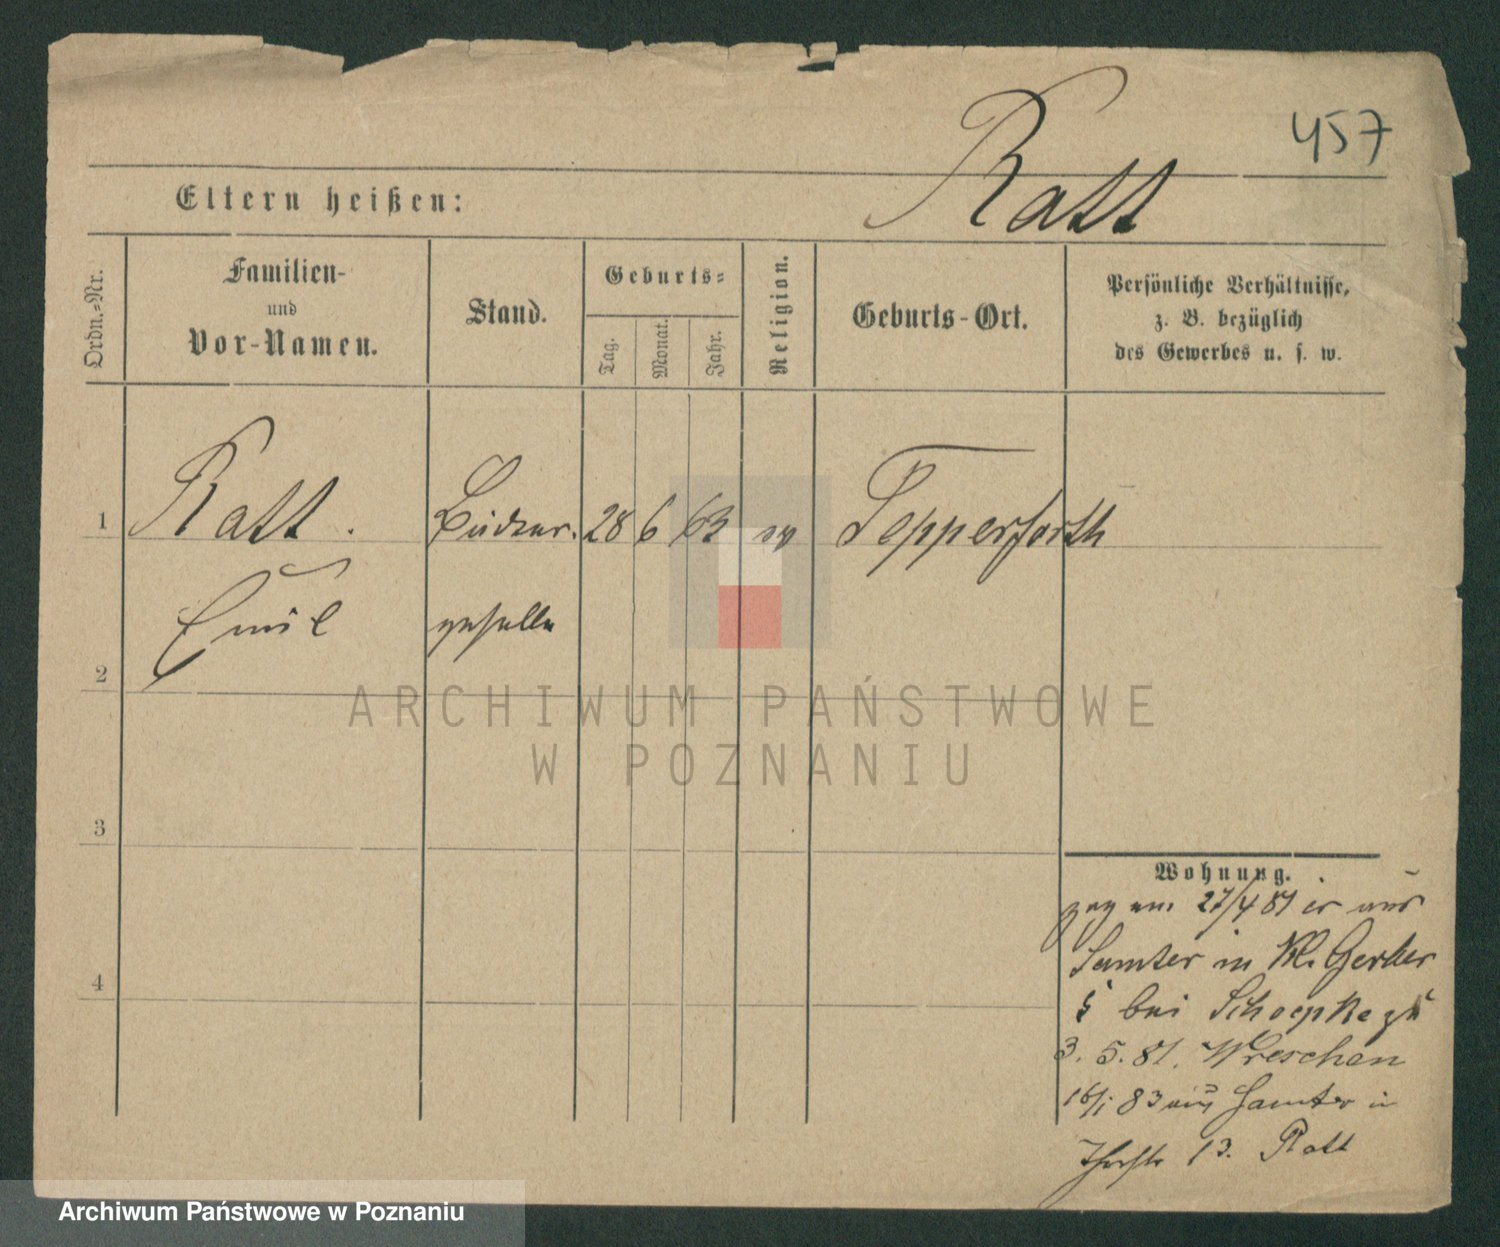 457
Ratt
Eltern heißen:
Ordn.=Nr.
Familien-
und
Vor-Namen.
Stand.
Geburts=
Tag.
Monat.
Jahr.
Religion.
Geburts-Ort.
Persönliche Verhältnisse,
z. B. bezüglich
des Gewerbes u. s. w.
1
Ratt.
28
6
63
ev
Tepperforth
Emil
geselle
2
ARCHIWUM PAŃSTWOWE
W POZNANIU
3
Wohnung.
zog am 27/4 81 aus
Samter in Kl. Gerber
5 bei Schoepke
4
3. 5. 81. Wreschen
16/1 83 aus Samter in
13. Ratt
Archiwum Państwowe w Poznaniu